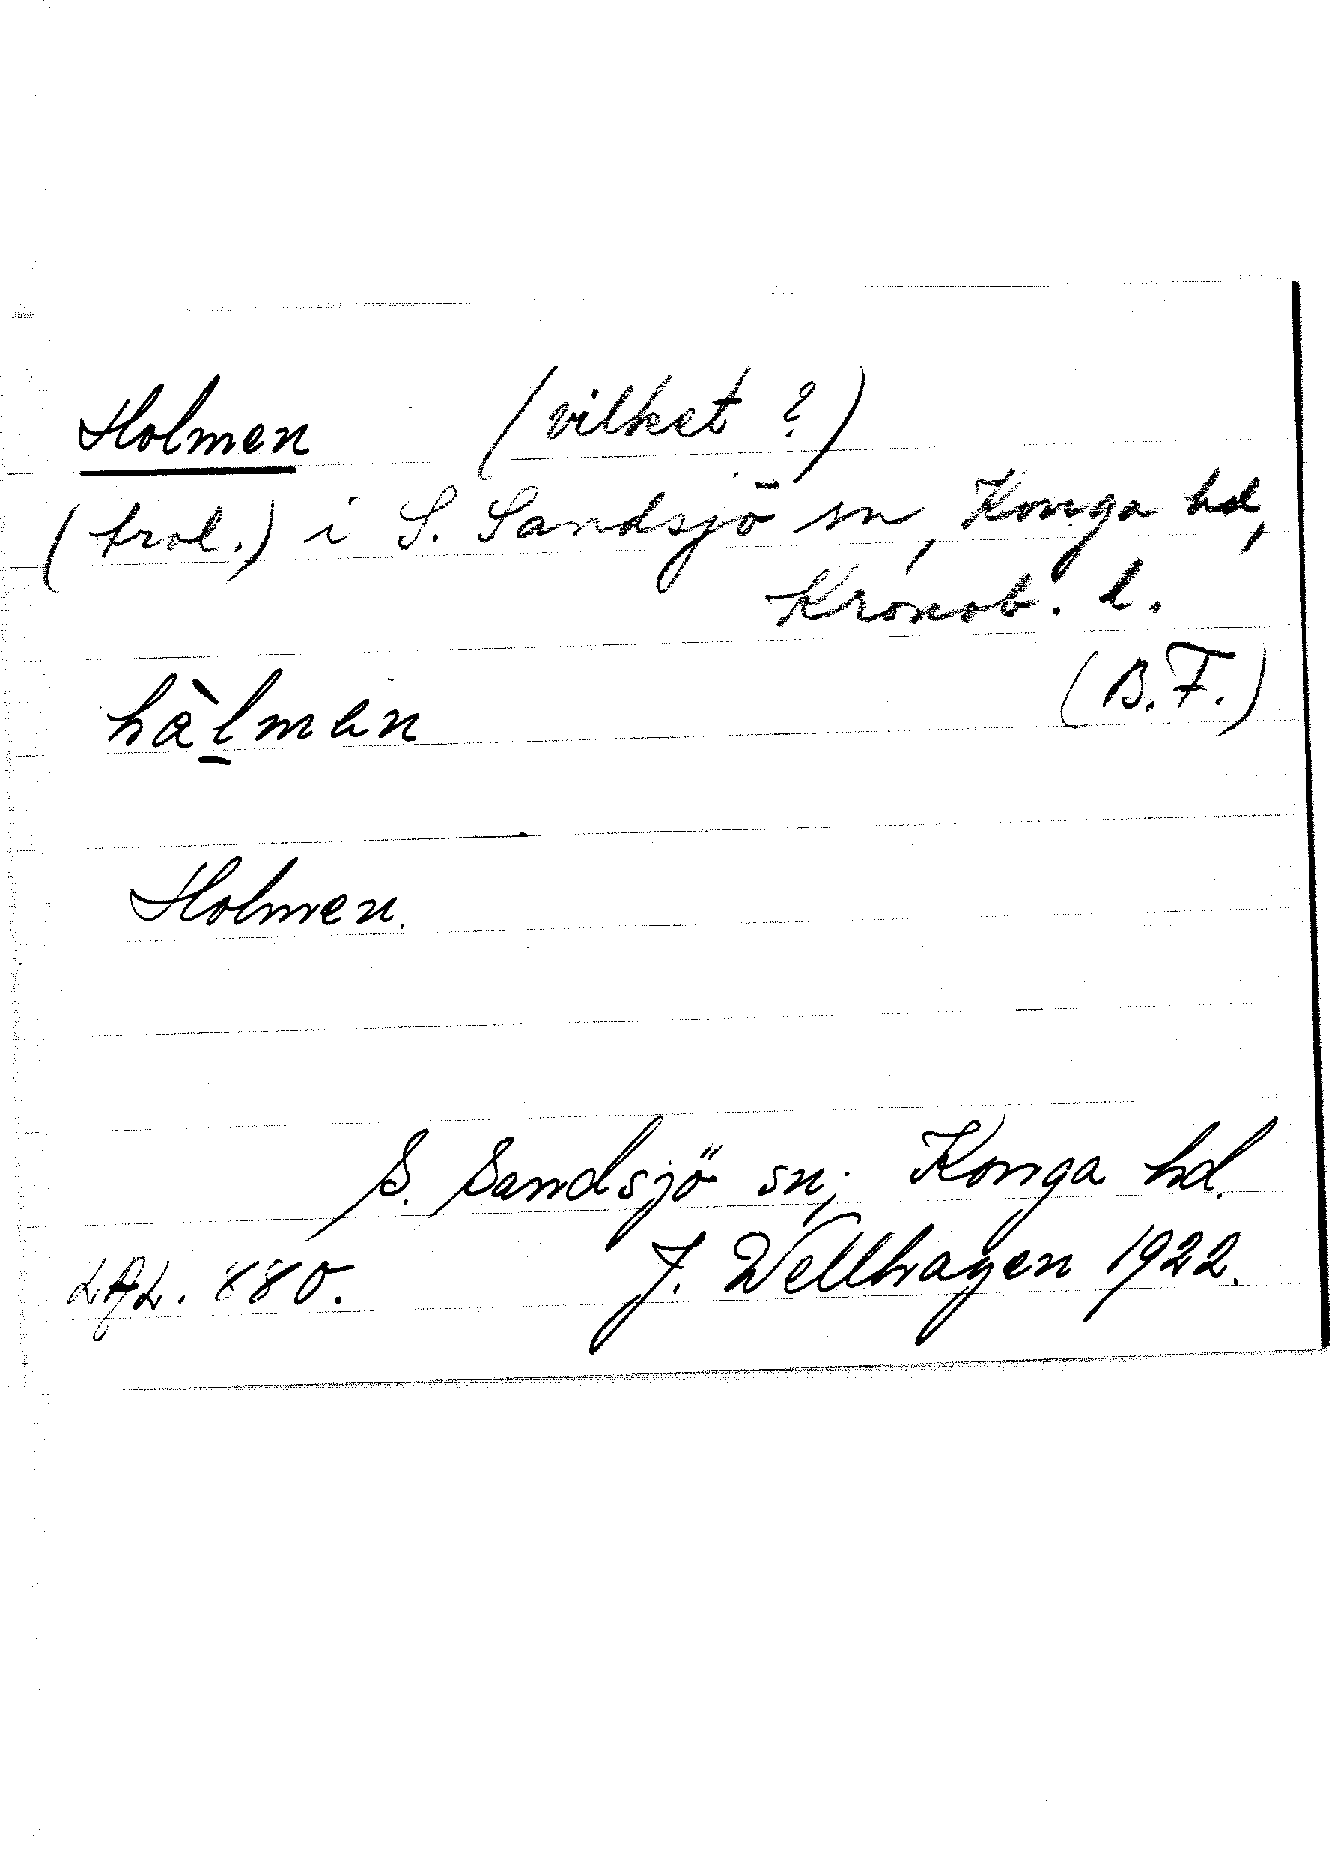 Holmen (vilket ?)
(trol.) i S. Sandsjö sn, Konga hd,
Kronob. l.
(B.F.)
hàl̲man
Holmen.
S. Sandsjö sn; Konga hd.
880. J. Wellhagen 1922.